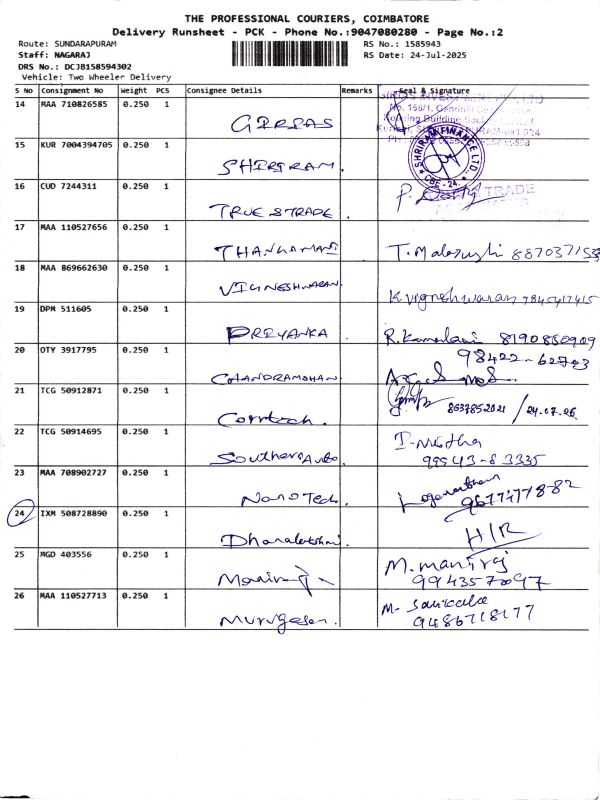 THE PROFESSIONAL COURIERS, COIMBATORE
Delivery Runsheet - PCK - Phone No.:9047080280 - Page No.:2
Route: SUNDARAPURAM RS No.: 1585943
Staff: NAGARAJ RS Date: 24-Jul-2025
DRS No.: DCJB158594302
Vehicle: Two Wheeler Delivery
S No Consignment No Weight PCS Consignee Details Remarks Seal & Signature
14 MAA 710826585 0.250 1
15 KUR 7004394705 0.250 1 SHRIRAM
SHRIRAM FINANCE LTD.
CBE - 24.
16 CUD 7244311 0.250 1 TRUE STRADE
TRADE
17 MAA 110527656 0.250 1 THANGAMANI
18 MAA 869662630 0.250 1 VIGNESHWARAN K. Vigneshwaran 7845417415
19 DPM 511605 0.250 1 PRIYANKA R. Kamalam 8190850909
20 OTY 3917795 0.250 1 CHANDRAMOHAN
21 TCG 50912871 0.250 1 8637852021 / 24.07.25
22 TCG 50914695 0.250 1 Southern Auto
99943-83335
23 MAA 708902727 0.250 1 Nano Tech.
24 IXM 508728890 0.250 1 Dhanalakshmi. H/R
25 MGD 403556 0.250 1 M. maniraj
26 MAA 110527713 0.250 1 Murugesan.
9486718177